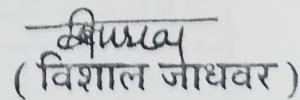 ( विशाल जाधवर )